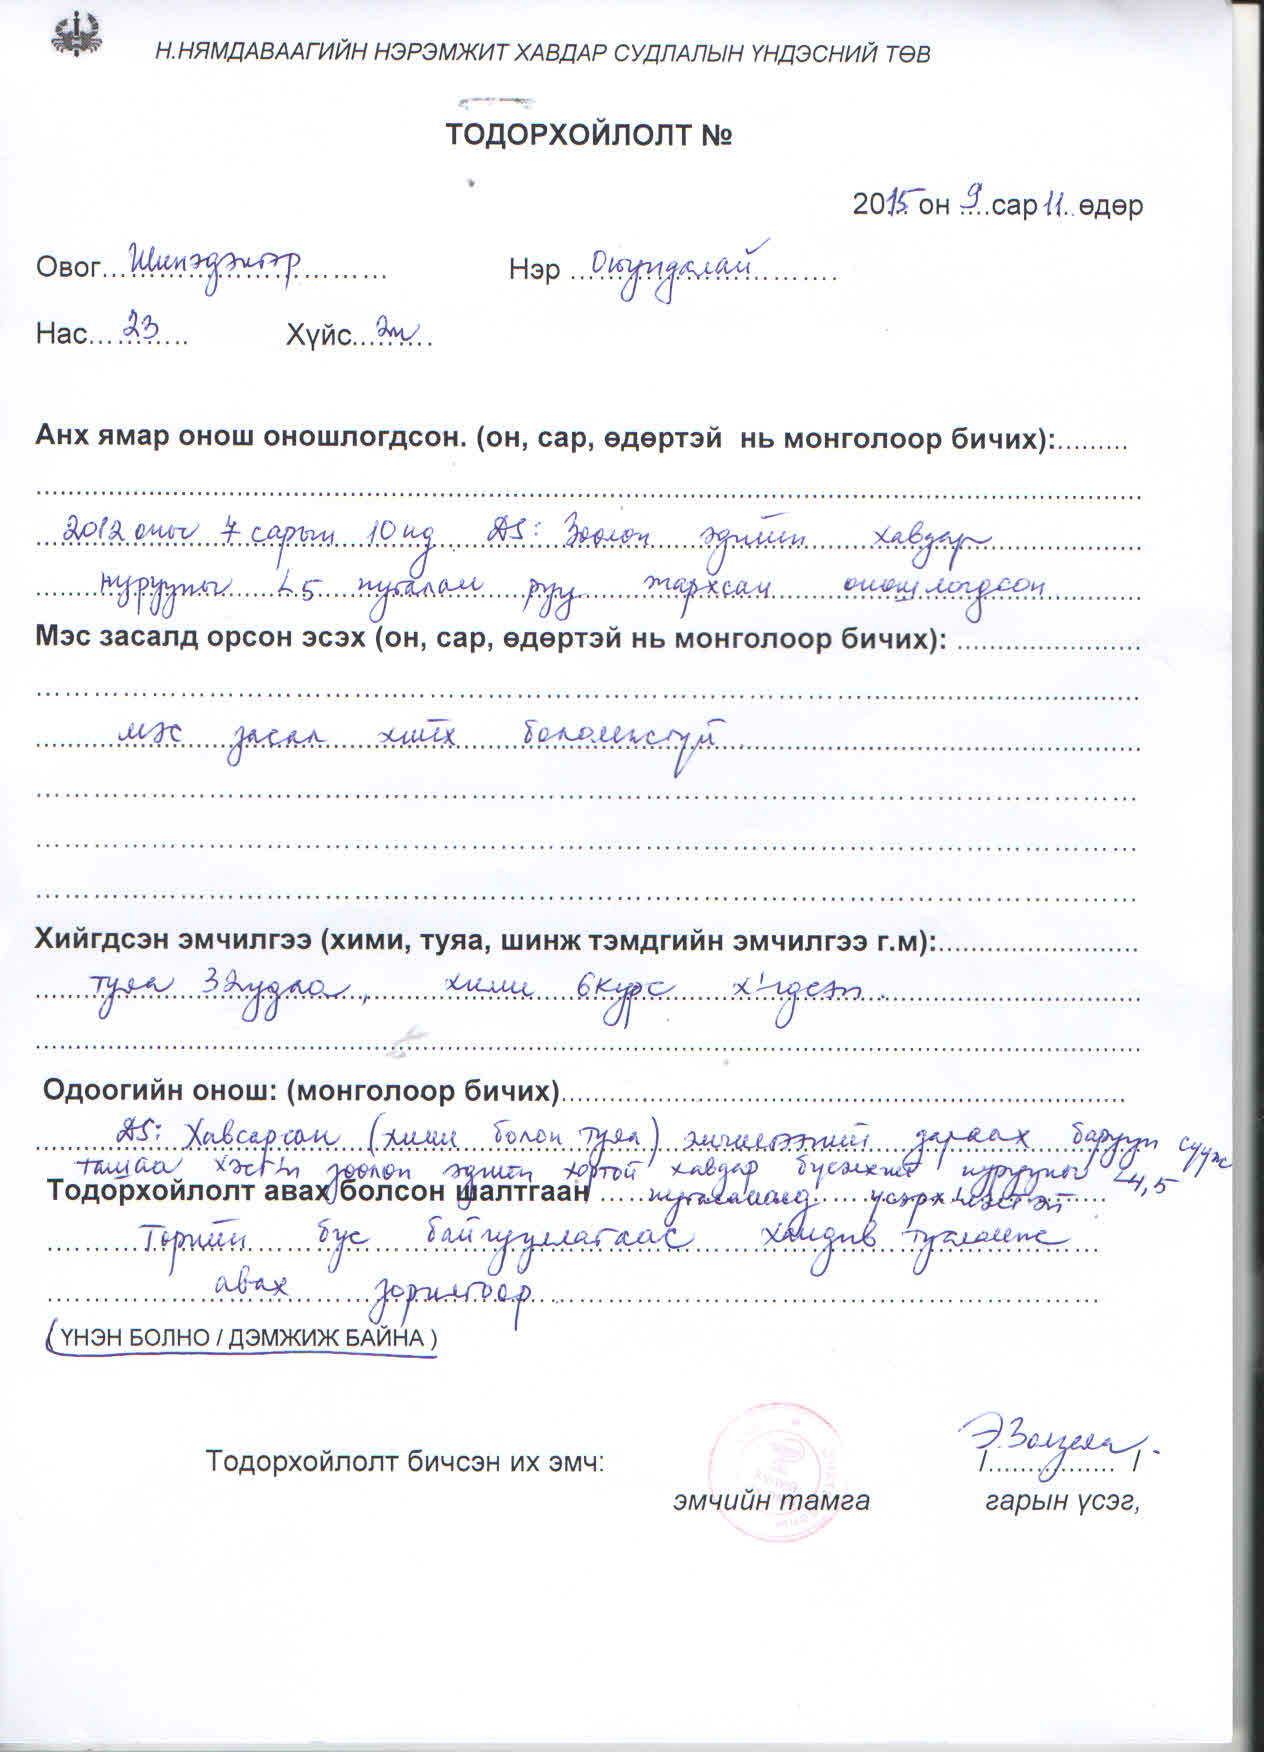 Н.НЯМДАВААГИЙН НЭРЭМЖИТ ХАВДАР СУДЛАЛЫН ҮНДЭСНИЙ ТӨВ
ТОДОРХОЙЛОЛТ №
2015 он 9 сар 11 өдөр
Овог... Шинэдэлгэр Нэр ... Оюундалай
Нас... 23 Хүйс... эм
Анх ямар онош оношлогдсон. (он, сар, өдөртэй нь монголоор бичих):
2012 оны 7 сарын 10 нд DS: Зөөлөн эдийн хавдар
нурууны L5 нугалам руу тархсан оношлогдсон
Мэс засалд орсон эсэх (он, сар, өдөртэй нь монголоор бичих):
мэс засал хийх боломжгүй
Хийгдсэн эмчилгээ (хими, туяа, шинж тэмдгийн эмчилгээ г.м):
туяа 32 удаа, хими 6 курс хийгдсэн.
Одоогийн онош: (монголоор бичих)
DS: Хавсарсан (хими болон туяа) эмчилгээний дараах баруун сууж
ташаа хэсгийн зөөлөн эдийн хортой хавдар бүсэлхий нурууны L4,5
Тодорхойлолт авах болсон шалтгаан ... нугаламанд үсэрхийлэлтэй
Төрийн бус байгууллагаас хандив тусламж
авах зорилгоор
(ҮНЭН БОЛНО / ДЭМЖИЖ БАЙНА )
Тодорхойлолт бичсэн их эмч: /................ /
эмчийн тамга гарын үсэг,